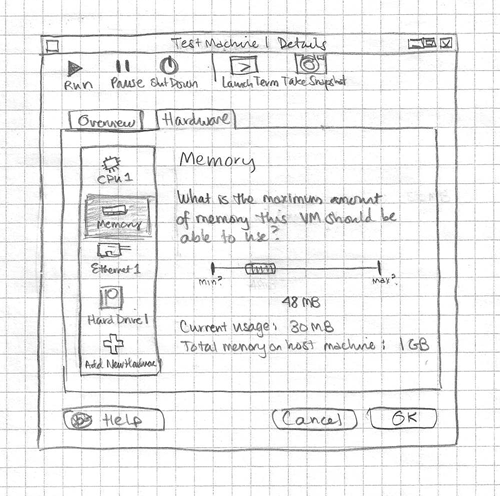 Test Machine 1 Details
Run Pause Shut Down Launch Term Take Snapshot
Overview Hardware
CPU 1
Memory
Ethernet 1
Hard Drive 1
Add New Hardware
Memory
What is the maximum amount
of memory this VM should be
able to use?
min? max?
48 MB
Current usage: 30 MB
Total memory on host machine: 1 GB
Help Cancel OK